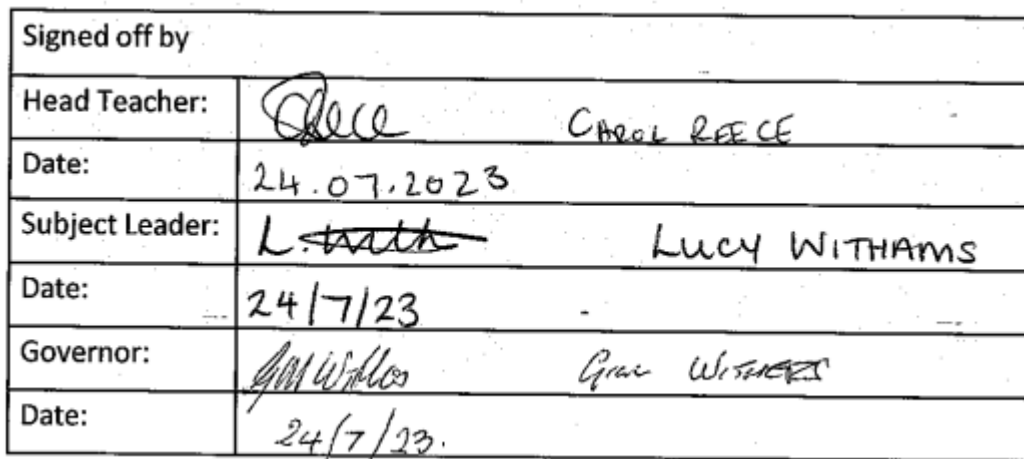 Signed off by
Head Teacher: CReece CAROL REECE
Date: 24.07.2023
Subject Leader: L. LUCY WITHAMS
Date: 24/7/23
Governor: WITHERS
Date: 24/7/23.